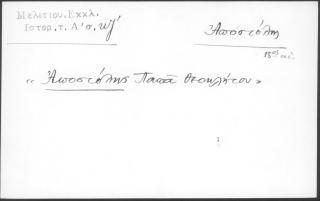 Μελετίου.Εκκλ.
Ἱστορ.τ.Α'σ.κζ'
Ἀποστόλης
18ος αἰ.
« Ἀποστόλης Παπᾶ Θεοκλήτου »